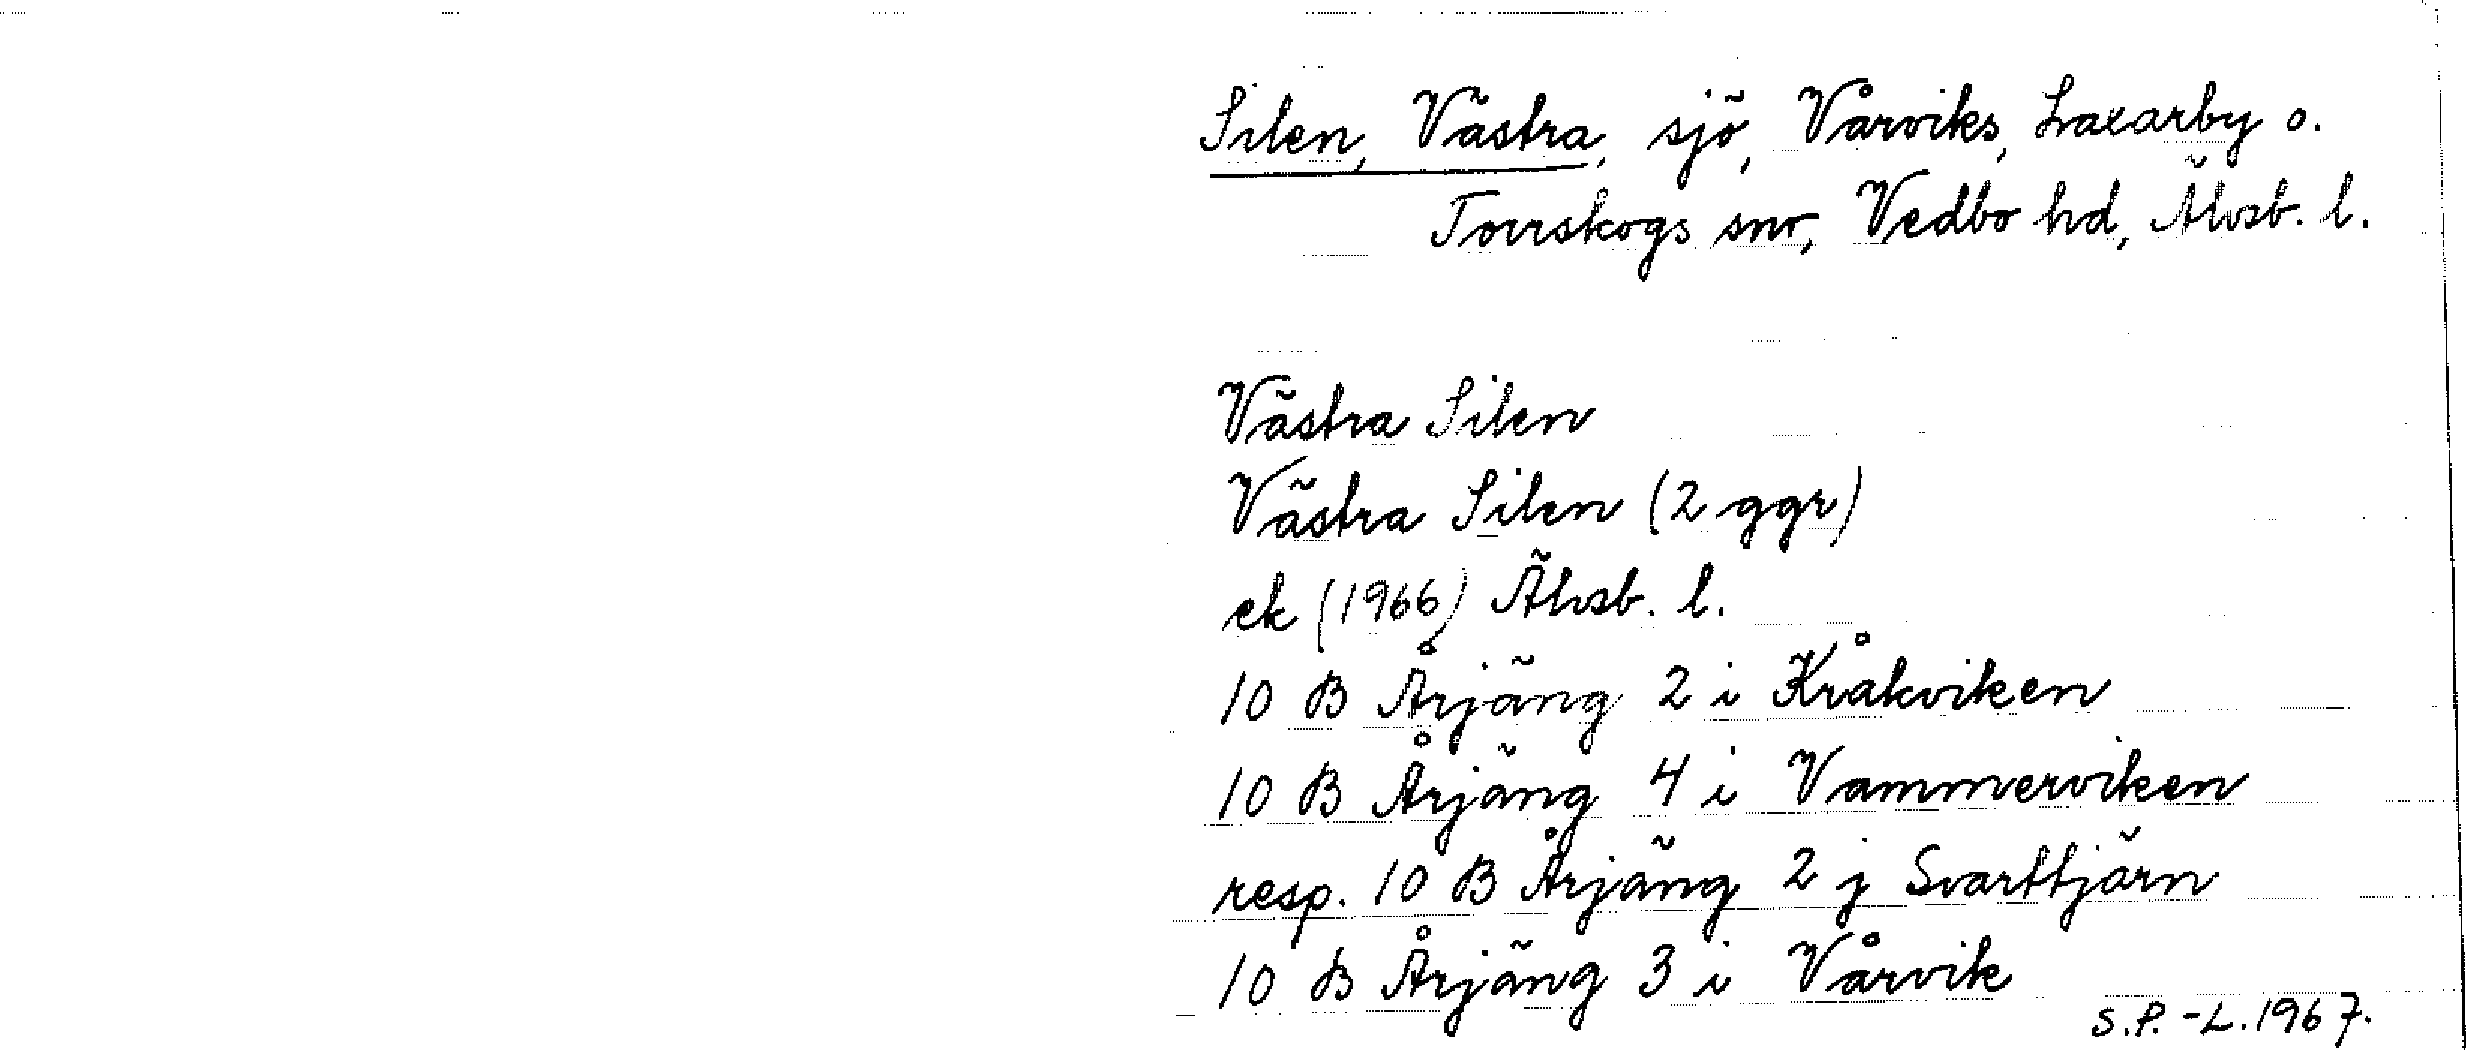 Silen, Västra, sjö, Vårviks, Laxarby o.
Torrskogs snr, Vedbo hd, Älvsb. l.
Västra Silen
Västra Silen (2 ggr)
ek (1966) Älvsb. l.
10 B Årjäng 2 i Kråkviken
10 B Årjäng 4 i Vammerviken
resp. 10 B Årjäng 2 j Svarttjärn
10 B Årjäng 3 i Vårvik
S.P.-L. 1967.